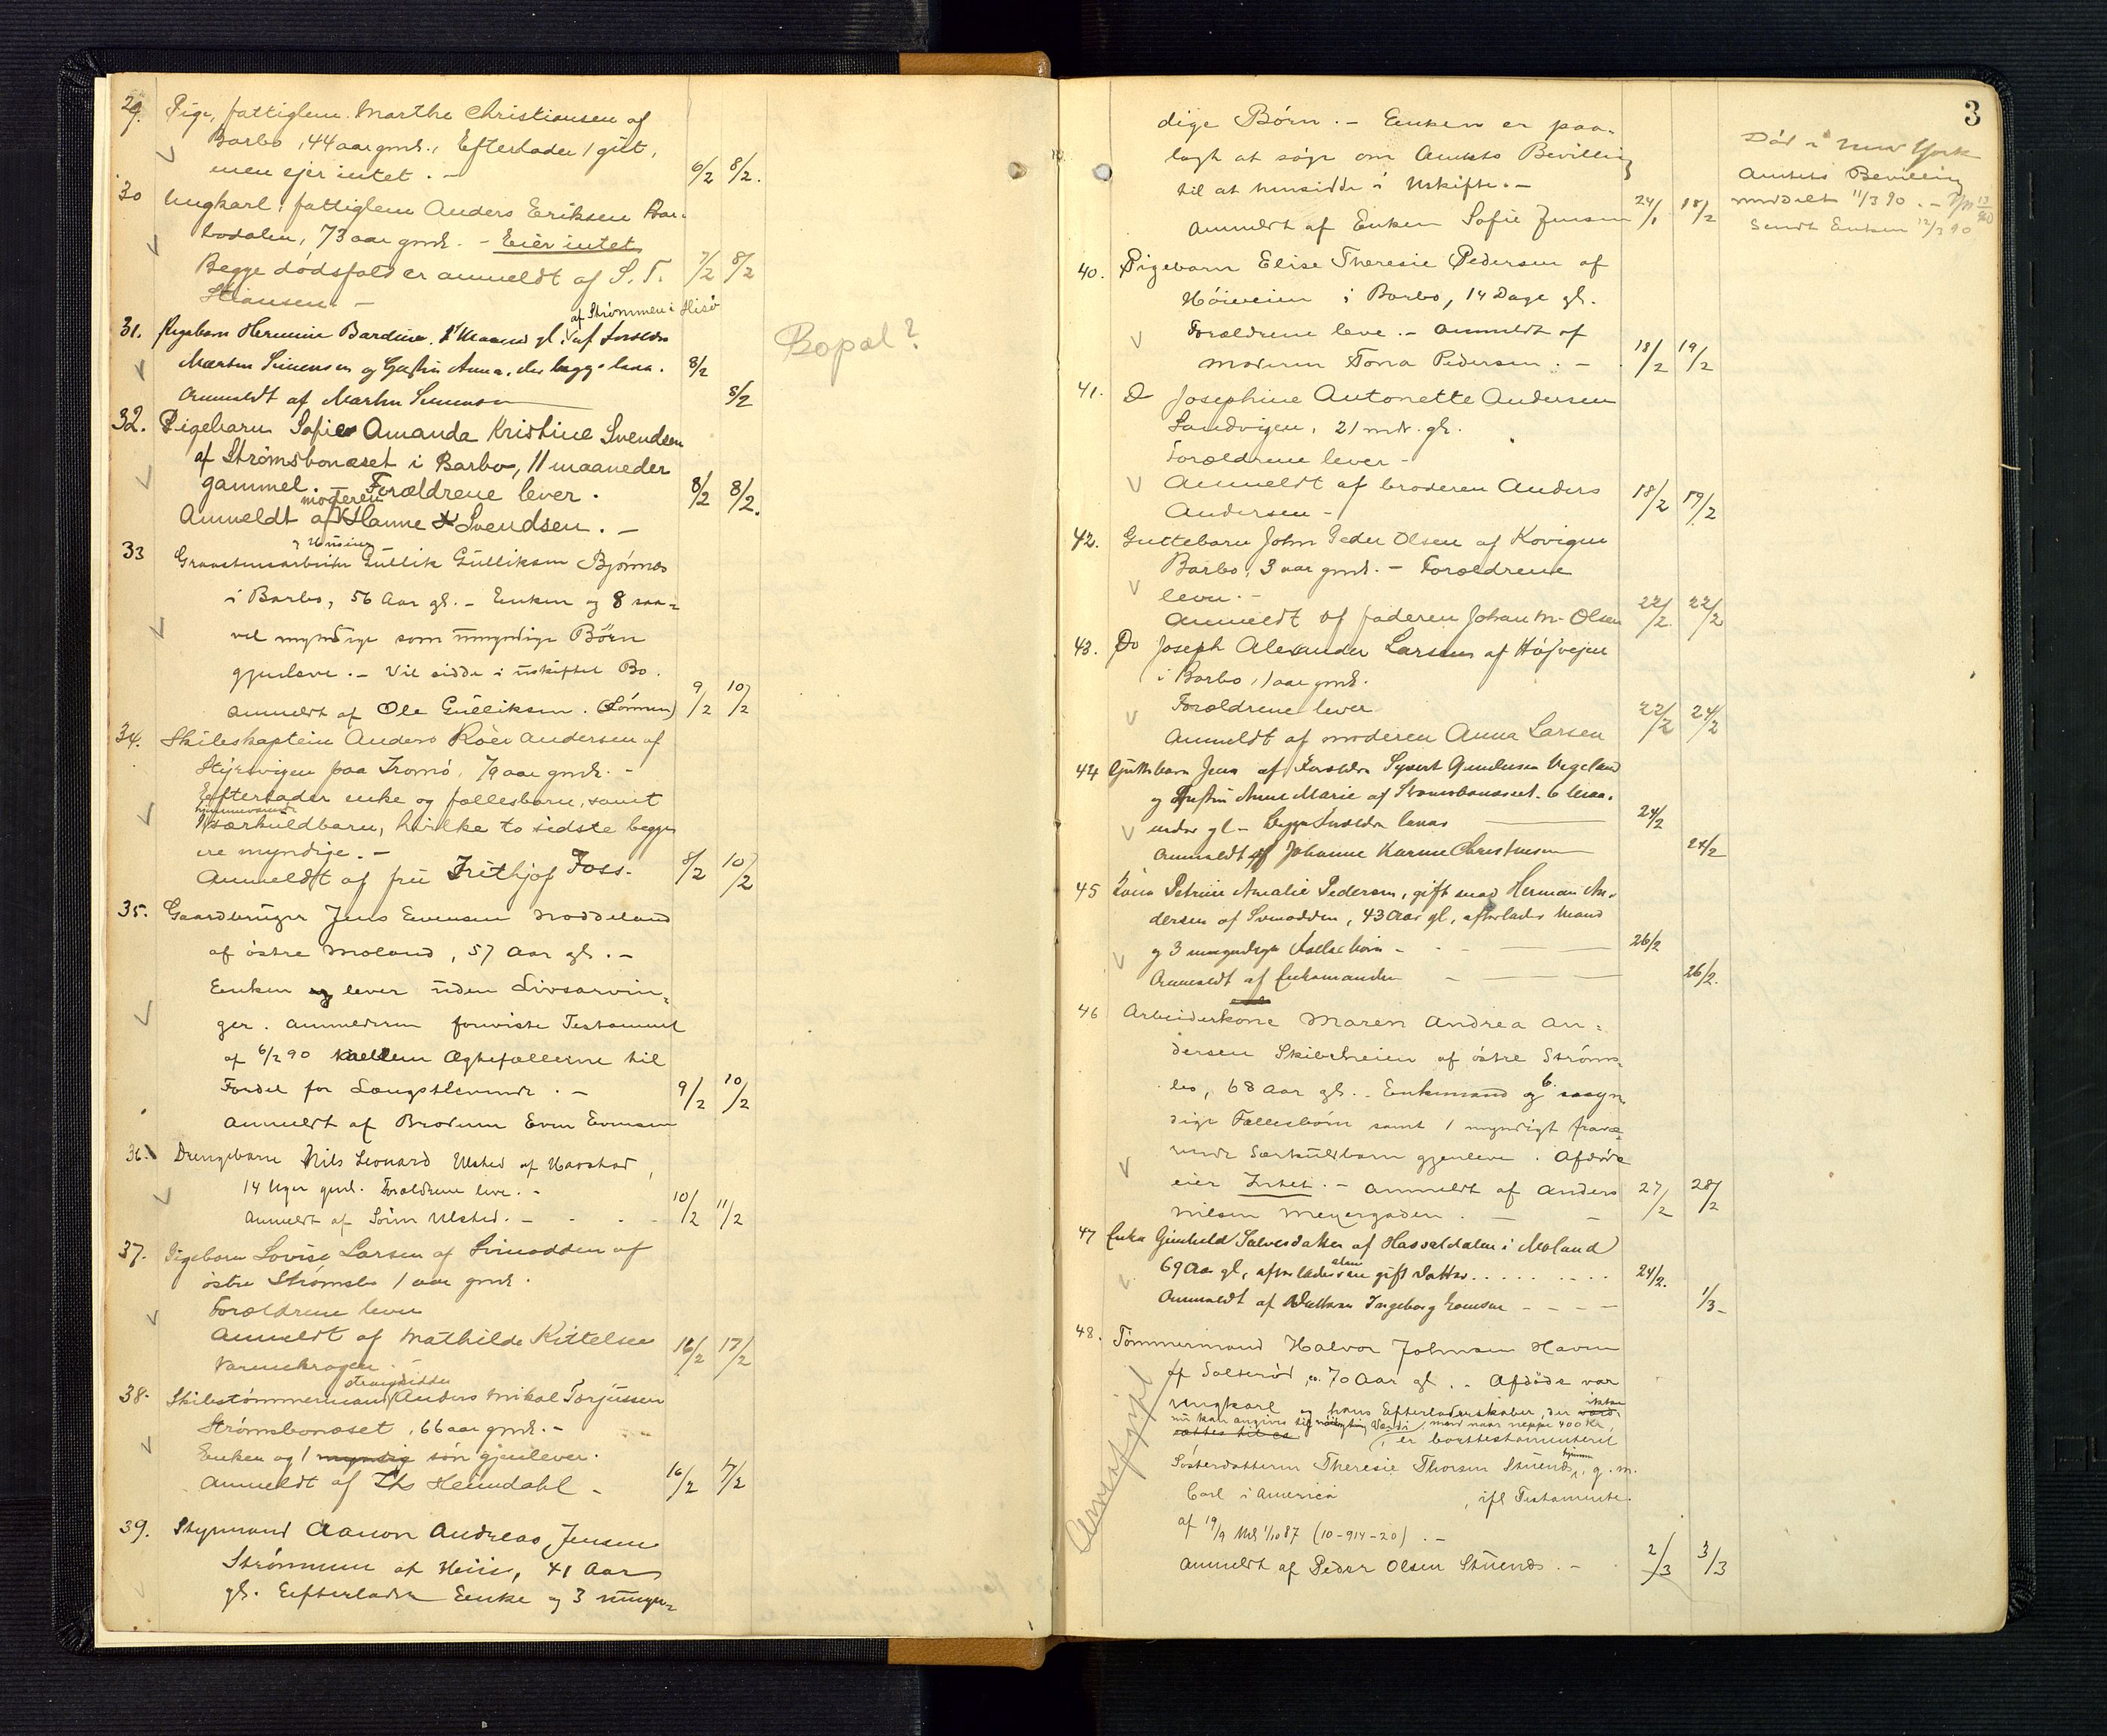 29. Pige, fattiglem Marthe Christiansen af
Barbo, 44 aar gml., Efterlader 1 gut,
men ejer intet. — 6/2 8/2.
30 Ungkarl, fattiglem Anders Eriksen Bar-
bodalen, 73 aar gml. — Eier intet
Begge dødsfald er anmeldt af S. T. 7/2 8/2
Stiansen. —
af Strømmen i Hisø
31. Pigebarn Hermine Bardine, 1 Maaned gl. af Forældre
Morten Simensen og Hustru Anna, der begge leva. 8/2
Anmeldt af Martin Simensen 8/2
Bopæl?
32. Pigebarn Sofie Amanda Kristine Svendsen
af Strømsbonæset i Barbo, 11 maaneder
gammel. Forældrene lever. 8/2 8/2.
moderen
Anmeldt af Hanne Svendsen. —
33 Graastensarbeider Gullik Gulliksen Bjørnnes
i Barbo, 56 Aar gl. — Enken og 8 saa-
vel myndige som umyndige Børn
gjenleve. — Vil sidde i uskiftet Bo.
Anmeldt af Ole Gulliksen. (Sønnen) 9/2 10/2
34. Skibskaptein Anders Röer Andersen af
paa Tromø, 79 aar gml. —
Efterlader enke og fællesbarn, samt
1 særkuldbarn, hvilke to sidste begge
ere myndige. —
Anmeldt af fru Frithjof Foss. 8/2 10/2
35. Gaardbruger Jens Evensen Noddeland
af østre Moland, 57 Aar gl. —
Enken lever uden Livsarvin-
ger. Anmelderen foreviste Testament
af 6/2 90 mellem Ægtefællerne til
Fordel for Længstlevende. — 9/2 10/2
Anmeldt af Broderen Even Evensen
36. Drengebarn Nils Leonard Ulsted af Havstad,
14 Uger gml. Forældrene leve. —
Anmeldt af Sörn Ulsted. — 10/2 11/2
37. Pigebarn Lovise Larsen af Svinodden af
østre Strømsbo 1 aar gml.
Forældrene lever
Anmeldt af Mathilde Kittelsen
Varmekrogen. — 16/2 17/2
38. Skibstømmermand Anders Mikal Torjussen
Strømsbonæset, 66 aar gml. —
Enken og 1 myndig søn gjenlever.
Anmeldt af Ths Heimdahl — 16/2 17/2
39. Styrmand Aanon Andreas Jensen
Strømmen af Hisö, 41 Aar
gl. Efterlader Enke og 3 umyn-
3
dige Børn. — Enken er paa-
lagt at søge om Amtets Bevilling
til at hensidde i Uskifte. —
Anmeldt af Enken Sofie Jensen 24/1 18/2
Död i New York
Amtets Bevilling
meddelt 11/3 90. —
Sendt Enken 12/3 90
40. Pigebarn Elise Theresie Pedersen af
Høiveien i Barbo, 14 Dage gl.
Forældrene leve. — Anmeldt af
Moderen Tora Pedersen. — 18/2 19/2
41. Do Josephine Antonette Andersen
Sandvigen, 21 mdr. gl.
Forældrene lever —
Anmeldt af broderen Anders
Andersen — 18/2 19/2
42. Guttebarn John Peder Olsen af Kovigen
Barbo, 3 aar gml. — Forældrene
lever. —
Anmeldt af faderen Johan M. Olsen 22/2. 22/2
43. Do Joseph Alexander Larsen af Højvejen
i Barbo, 1 aar gml.
Forældrene lever
Anmeldt af moderen Anna Larsen 22/2 24/2
44 Guttebarn Jens af Forældre Syvert Gundersen Vegeland
og Hustru Anne Marie af Strømsbonæset. 6 Maa-
neder gl — begge Forældre leva 24/2
Anmeldt af Johanne Karine Christensen 24/2
45 Kone Petrine Amalie Pedersen, gift med Herman An-
dersen af Svinodden, 43 Aar gl, efterlader Mand
og 3 umyndige Fællesbörn — 26/2
Anmeldt af Enkemanden — 26/2.
46 Arbeiderkone Maren Andrea An-
dersen Skibsheien af østre Strøms-
bo, 68 Aar gl. . Enkemand og 6 myn-
dige Fællesbörn samt 1 myndigt fravæ-
rende Særkuldbarn gjenleve. Afdøde
eier Intet. — Anmeldt af Anders 27/2 28/2
Nilsen Meyergaden. —
47 Enke Gunhild Salvesdatter af Hasseldalen i Moland
69 Aar gl, efterlader en gift datter. . . . . 24/2.
Anmeldt af Datteren Ingeborg — 1/3 —
48. Tömmermand Halvor Johnsen Haven
af Salteröd, 70 Aar gl. . Afdöde var
Ungkarl og hans Efterladenskaber, der ikke
nu kan angives til nöiagtig Værdi, men naar neppe 400 Kr,
er borttestamenteret
Søsterdatteren Theresie Thorsen Stuenes, g. m.
Carl i America, ifl Testamente
af 19/9 1/10 87 (10-914-20). —
Anmeldt af Peder Olsen Stuenes. — 2/3 3/3